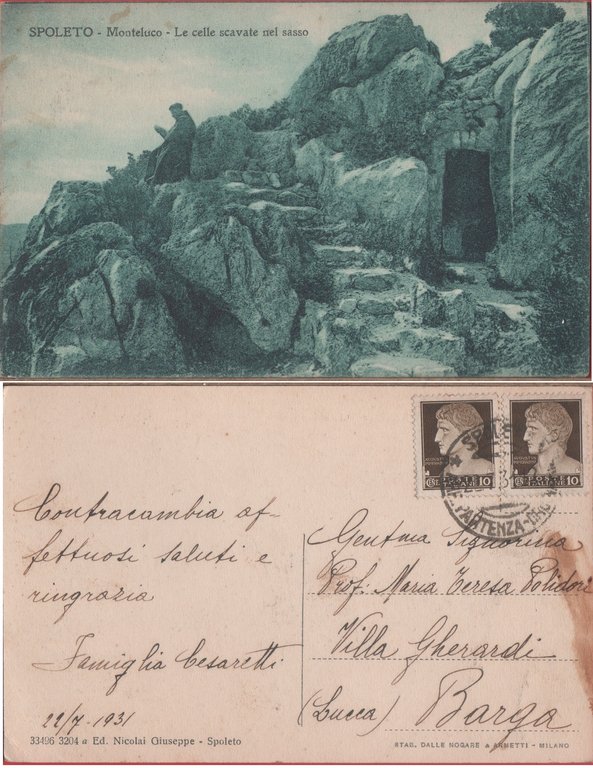 SPOLETO - Monteluco - Le celle scavate nel sasso
10
POSTE ITALIANE 10
PARTENZA
Contracambia af-
fettuosi saluti e
ringrazia
Famiglia Cesaretti
22/7-1931
Gentma Signorina
Prof: Maria Teresa Polidori
Villa Gherardi
(Lucca) Barga
33496 3204 a Ed. Nicolai Giuseppe - Spoleto
STAB. DALLE NOGARE & ARMETTI - MILANO